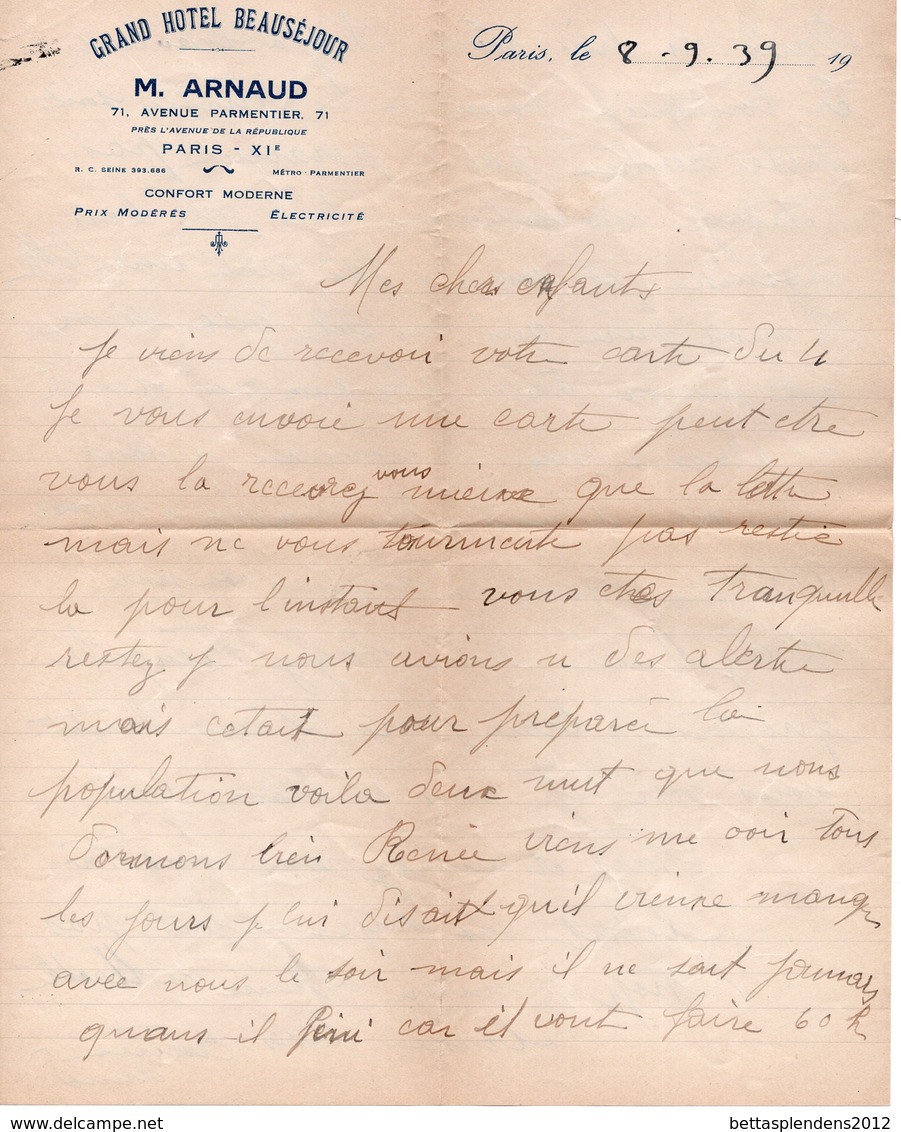 GRAND HOTEL BEAUSÉJOUR
M. ARNAUD
71, AVENUE PARMENTIER, 71
PRÈS L'AVENUE DE LA RÉPUBLIQUE
PARIS - XIE
R. C. SEINE 393.686 MÉTRO - PARMENTIER
CONFORT MODERNE
PRIX MODÉRÉS ÉLECTRICITÉ
Paris, le 8 - 9. 39 19
Mes chers enfants
Je viens de recevoir votre carte du 4
Je vous envoie une carte peut etre
vous la recevrez vous mieux que la lettre
mais ne vous tourmente pas restié
la pour l'instant vous etes Tranquille
restez y nous avions u des alerte
mais cetait pour préparée la
population voila deux nuit que nous
dormons bien Renée viens me voir Tous
les jours je lui disait quil vienne mange
avec nous le soir mais il ne sait jamais
quans il fini car il vont faire 60 h
delcampe.net bettasplendens2012